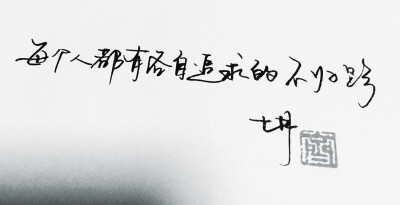 每个人都有各自追求的不归路
七井